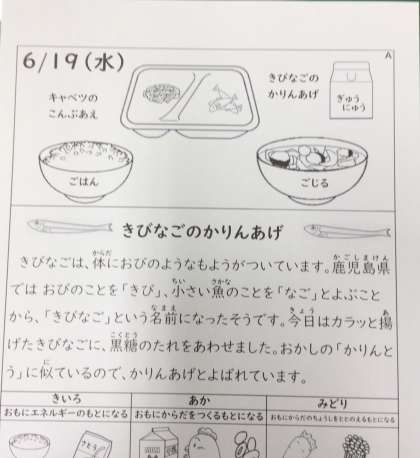 6/19(水)
A
キャベツの
こんぶあえ
きびなごの
かりんあげ
ぎゅう
にゅう
ごはん
ごじる
きびなごのかりんあげ
きびなごは、体におびのようなもようがついています。鹿児島県
では おびのことを「きび」、小さい魚のことを「なご」とよぶこと
から、「きびなご」という名前になったそうです。今日はカラッと揚
げたきびなごに、黒糖のたれをあわせました。おかしの「かりんと
う」に似ているので、かりんあげとよばれています。
きいろ
あか
みどり
おもにエネルギーのもとになる
おもにからだをつくるもとになる
おもにからだのちょうしをととのえるもとになる
さとう